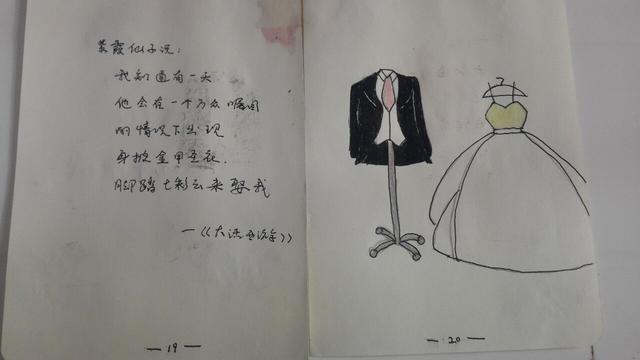 紫霞仙子说：
我知道有一天
他会在一个万众瞩目
的情况下出现
身披金甲圣衣
脚踏七彩云来娶我
—《大话西游》
—19—
—20—